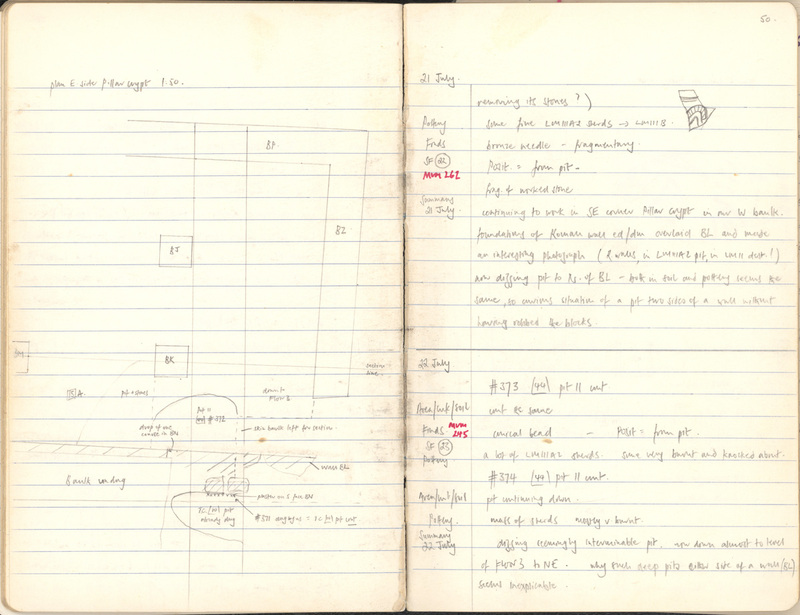 plan E side Pillar crypt 1.50.
BP
BZ
BJ
BK
section line
down to Floor 3
pit =
#372
drop of one
skin baulk left for section
wall BL
Baulk undug
plaster on S face BN
pit
already dug
#371
50.
21 July.
removing its stones?)
Pottery some fine LMIIIA2 sherds → LMIIIB.
Finds bronze needle - fragmentary
SF (22) POSIT. = from pit -
MVM 262
frag. of worked stone
Summary
21 July continuing to work in SE corner Pillar crypt in our W baulk.
foundations of Roman wall ed/dm overlaid BL and made
an interesting photograph (R. walls in LMIIIA2 pit, in LMII dust!)
now digging pit to N. of BL - both in soil and pottery seems the
same, so curious situation of a pit two sides of a wall without
having robbed the blocks.
22 July
#373 (44) pt 11 cont
Area/wk/soil cont as same
Finds MVM 245 conical bead - POSIT = from pit.
SF (23)
Pottery a lot of LMIIIA2 sherds. some very burnt and knocked about.
#374 (44) pt 11 cont.
Area/wk/soil pit continuing down.
Pottery. mass of sherds mostly v burnt.
Summary
22 July digging seemingly interminable pit. now down almost to level
of Floor 3 to NE. why such deep pits either side of a wall (BL)
seems inexplicable.